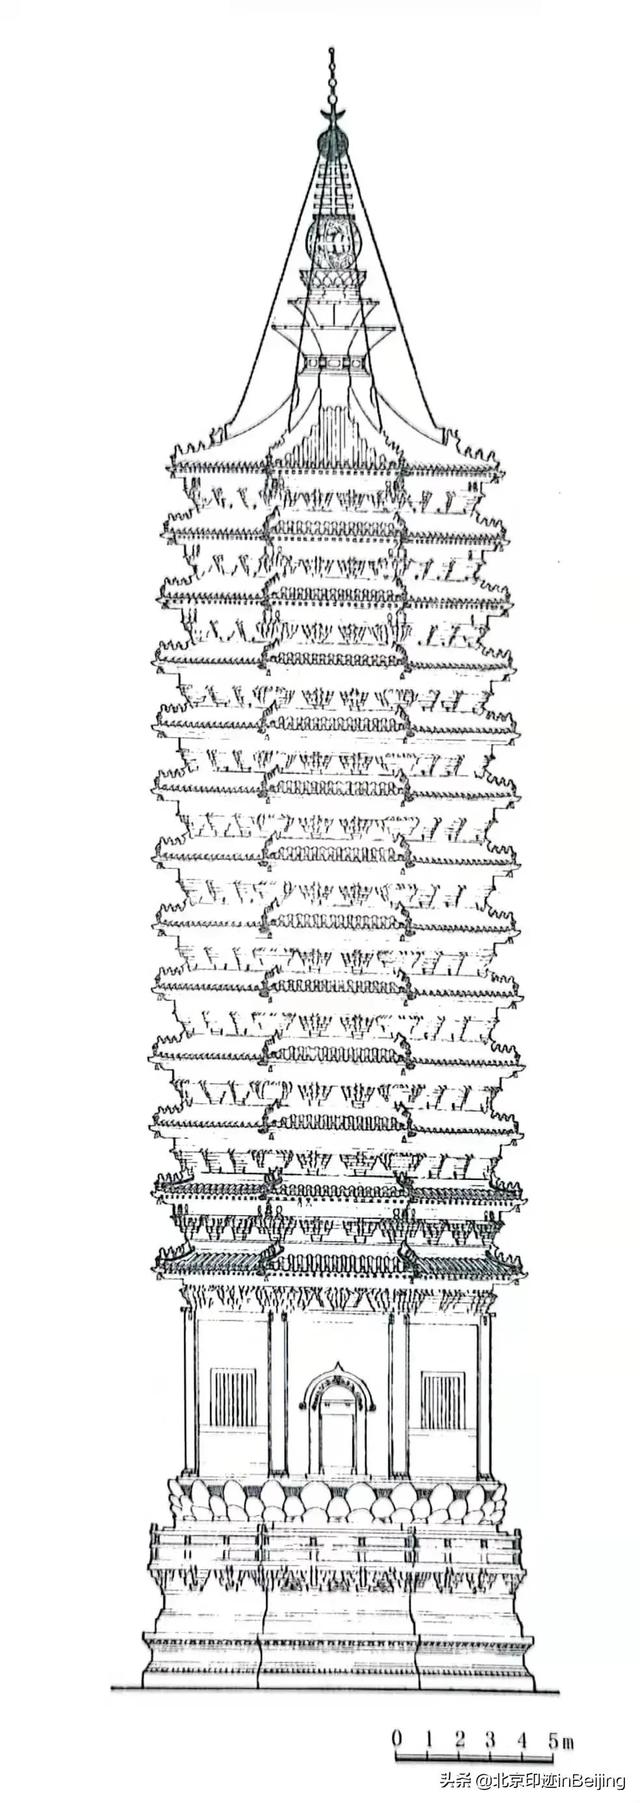 0 1 2 3 4 5m
头条 @北京印迹inBeijing